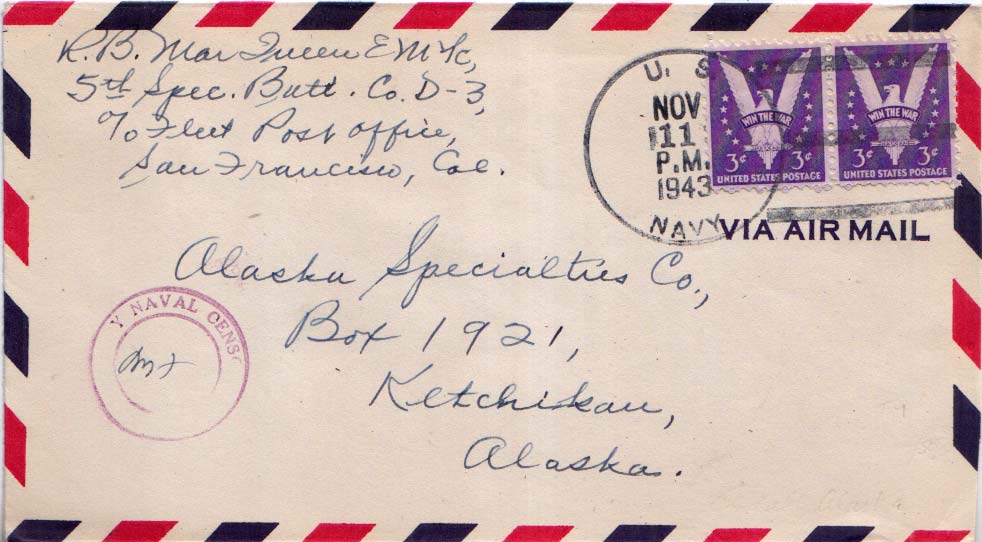 R. B. Mar Queen E M 1/c,
5th Spec. Batt. Co. D-3,
c/o Fleet Post office,
San Francisco, Cal.
U. S.
NOV
11
P.M.
1943
NAVY
WIN THE WAR
3¢ 3¢
UNITED STATES POSTAGE
WIN THE WAR
3¢ 3¢
UNITED STATES POSTAGE
VIA AIR MAIL
Alaska Specialties Co.,
Box 1921,
Ketchikan,
Alaska.
Y NAVAL CENSO